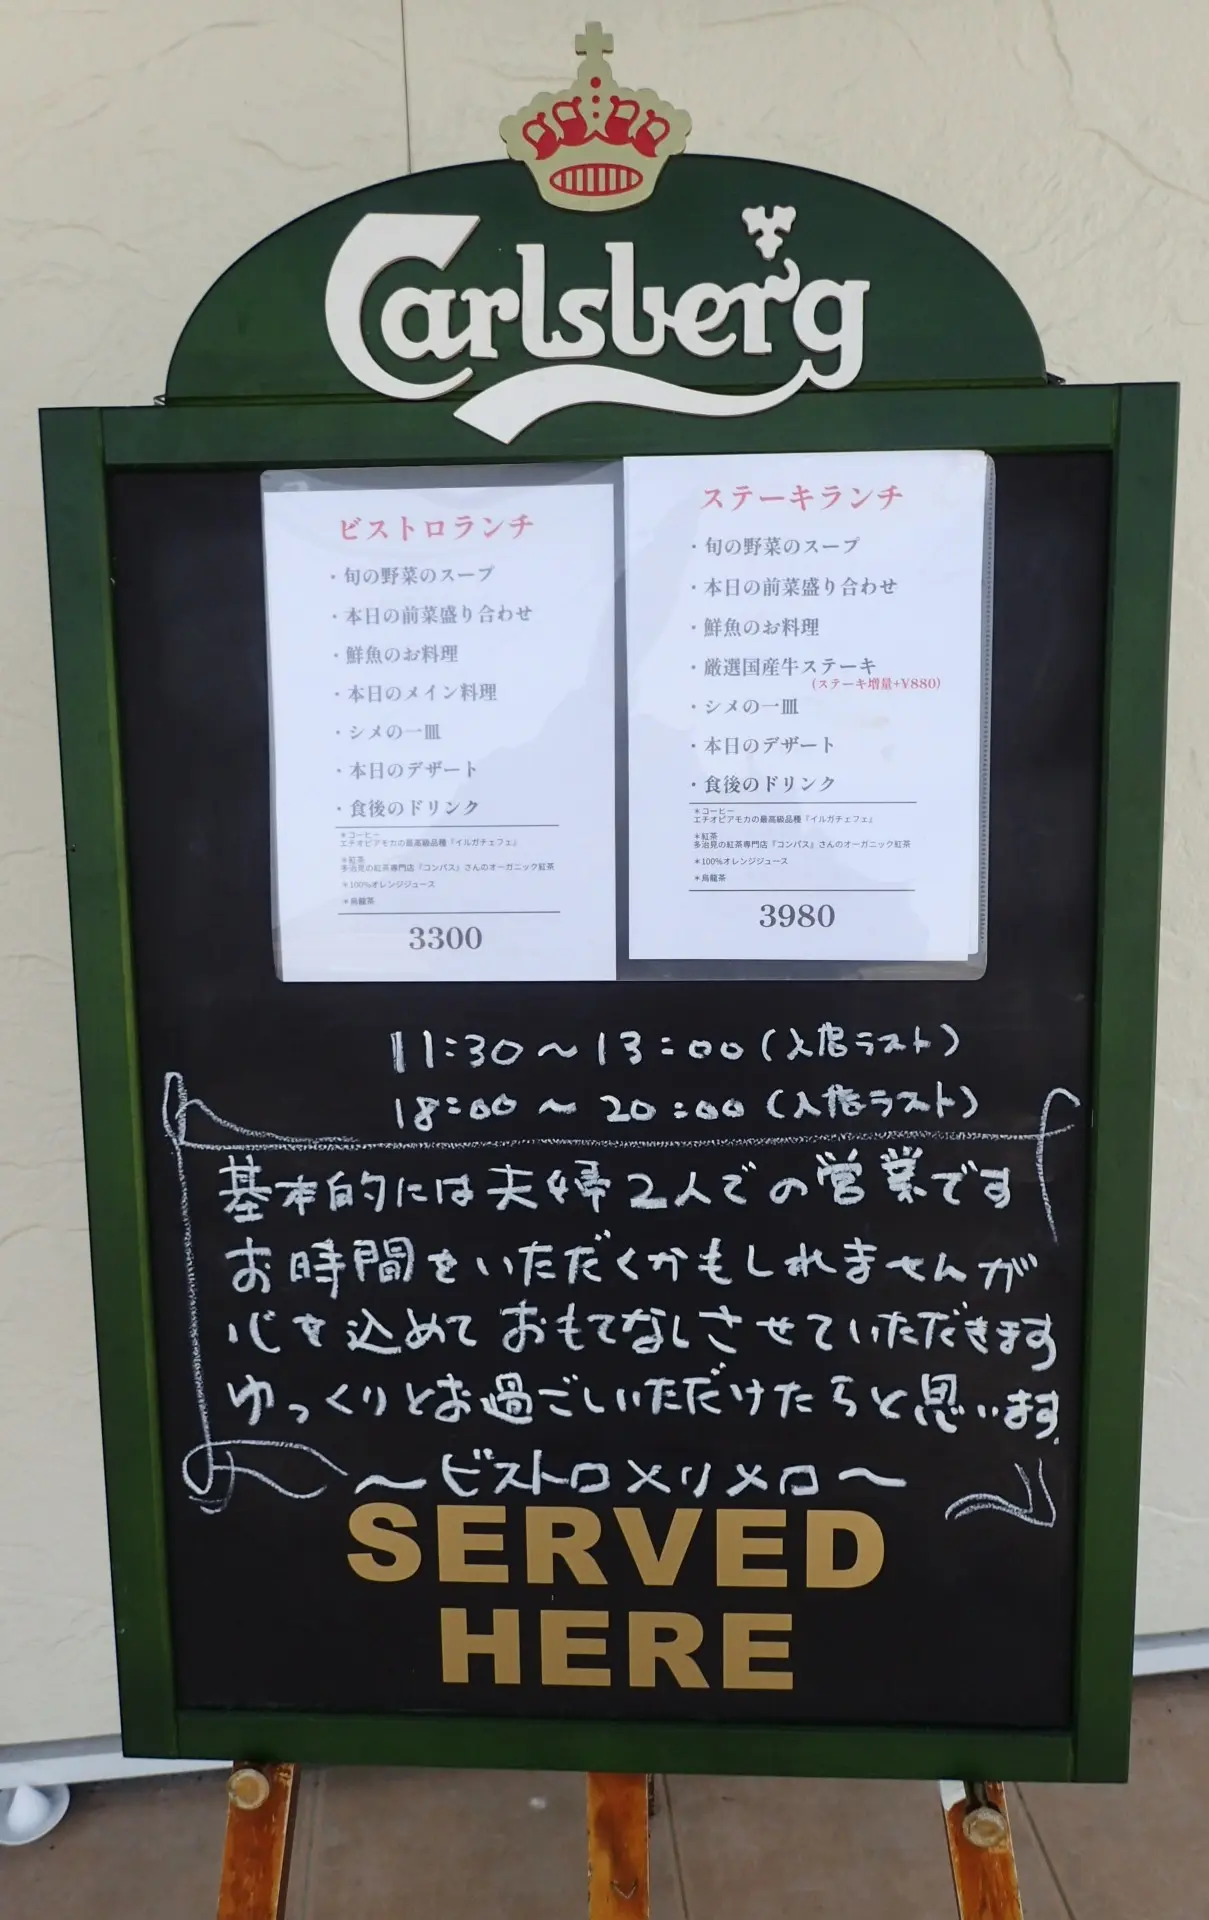 Carlsberg
ビストロランチ
・旬の野菜のスープ
・本日の前菜盛り合わせ
・鮮魚のお料理
・本日のメイン料理
・シメの一皿
・本日のデザート
・食後のドリンク
＊コーヒー
エチオピアモカの最高級品種『イルガチェフェ』
＊紅茶
多治見の紅茶専門店『コンパス』さんのオーガニック紅茶
＊100%オレンジジュース
＊烏龍茶
3300
ステーキランチ
・旬の野菜のスープ
・本日の前菜盛り合わせ
・鮮魚のお料理
・厳選国産牛ステーキ
(ステーキ増量+¥880)
・シメの一皿
・本日のデザート
・食後のドリンク
＊コーヒー
エチオピアモカの最高級品種『イルガチェフェ』
＊紅茶
多治見の紅茶専門店『コンパス』さんのオーガニック紅茶
＊100%オレンジジュース
＊烏龍茶
3980
11:30～13:00(入店ラスト)
18:00～20:00(入店ラスト)
基本的には夫婦2人での営業です
お時間をいただくかもしれませんが
心を込めておもてなしさせていただきます
ゆっくりとお過ごしいただけたらと思います.
～ビストロメリメロ～
SERVED
HERE